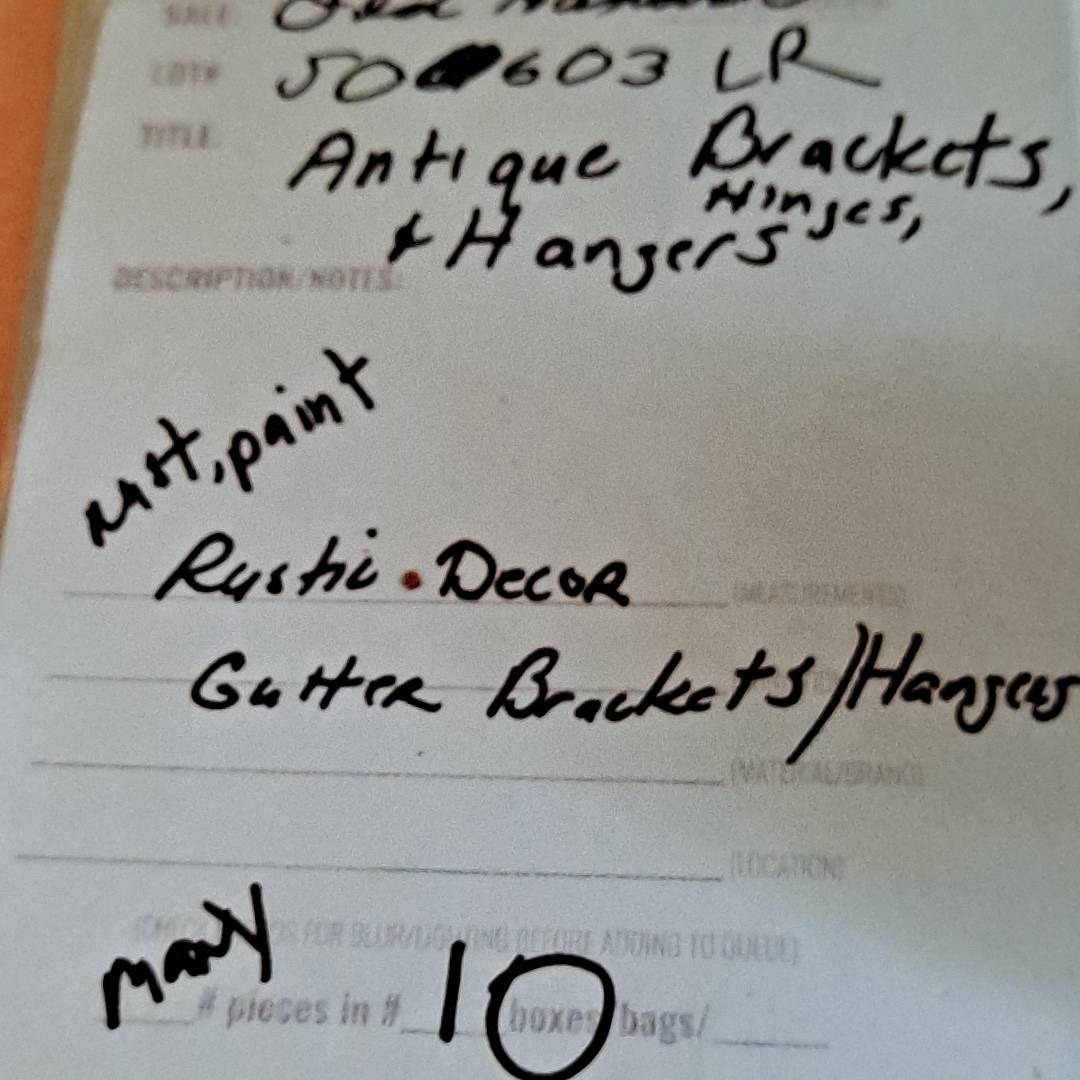 SALE:
LOT# 50 603 LR
TITLE: Antique Brackets,
Hinges,
& Hangers
DESCRIPTION/NOTES:
rust, paint
Rustic • Decor (MEASUREMENTS)
Gutter Brackets/Hangers
(MATERIAL/BRAND)
(LOCATION)
FOR BLUR/LIGHTING BEFORE ADDING TO QUEUE)
many # pieces in # 1 boxes/bags/